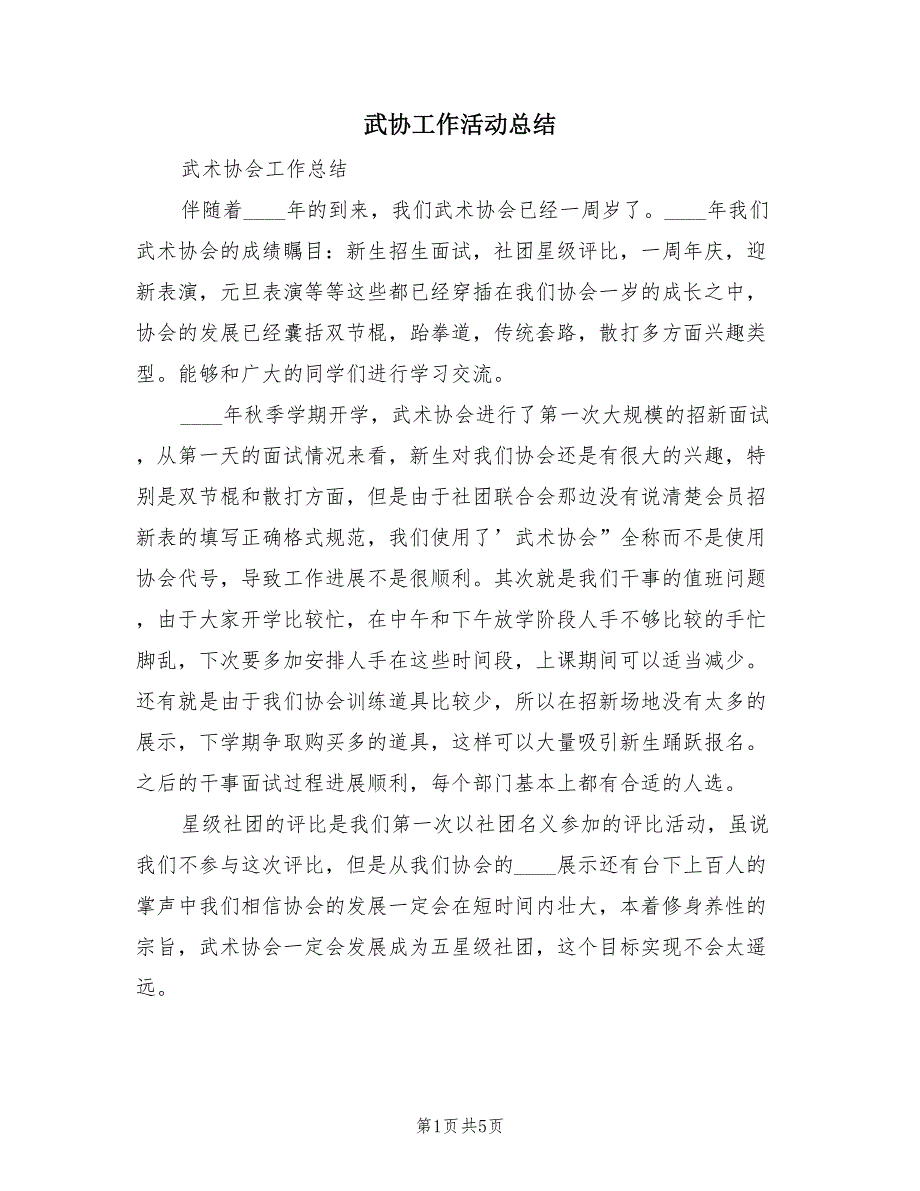 武协工作活动总结
武术协会工作总结
伴随着____年的到来，我们武术协会已经一周岁了。____年我们
武术协会的成绩瞩目：新生招生面试，社团星级评比，一周年庆，迎
新表演，元旦表演等等这些都已经穿插在我们协会一岁的成长之中，
协会的发展已经囊括双节棍，跆拳道，传统套路，散打多方面兴趣类
型。能够和广大的同学们进行学习交流。
____年秋季学期开学，武术协会进行了第一次大规模的招新面试
，从第一天的面试情况来看，新生对我们协会还是有很大的兴趣，特
别是双节棍和散打方面，但是由于社团联合会那边没有说清楚会员招
新表的填写正确格式规范，我们使用了’武术协会”全称而不是使用
协会代号，导致工作进展不是很顺利。其次就是我们干事的值班问题
，由于大家开学比较忙，在中午和下午放学阶段人手不够比较的手忙
脚乱，下次要多加安排人手在这些时间段，上课期间可以适当减少。
还有就是由于我们协会训练道具比较少，所以在招新场地没有太多的
展示，下学期争取购买多的道具，这样可以大量吸引新生踊跃报名。
之后的干事面试过程进展顺利，每个部门基本上都有合适的人选。
星级社团的评比是我们第一次以社团名义参加的评比活动，虽说
我们不参与这次评比，但是从我们协会的____展示还有台下上百人的
掌声中我们相信协会的发展一定会在短时间内壮大，本着修身养性的
宗旨，武术协会一定会发展成为五星级社团，这个目标实现不会太遥
远。
第1页共5页